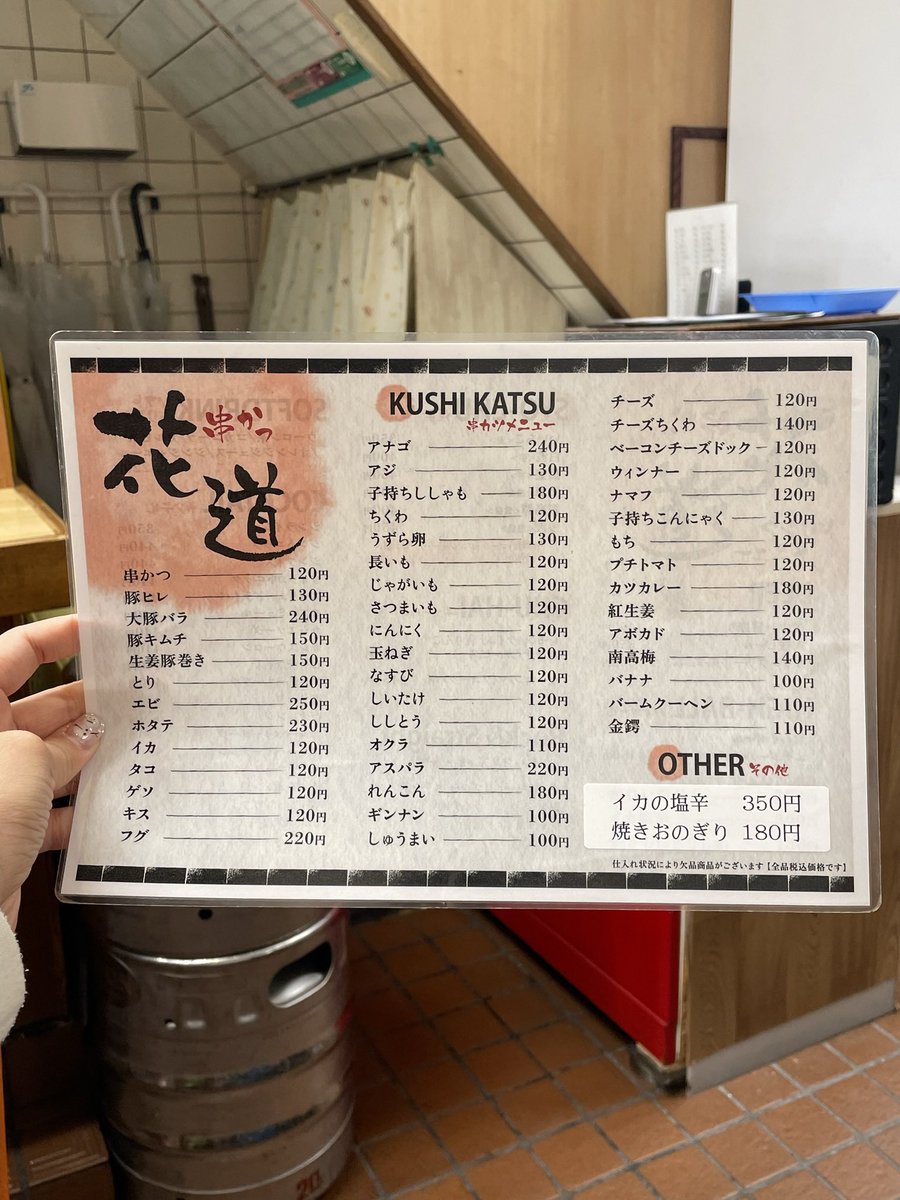 花道
串かつ
串かつ 120円
豚ヒレ 130円
大豚バラ 240円
豚キムチ 150円
生姜豚巻き 150円
とり 120円
エビ 250円
ホタテ 230円
イカ 120円
タコ 120円
ゲソ 120円
キス 120円
フグ 220円
KUSHI KATSU
串カツメニュー
アナゴ 240円
アジ 130円
子持ちししゃも 180円
ちくわ 120円
うずら卵 130円
長いも 120円
じゃがいも 120円
さつまいも 120円
にんにく 120円
玉ねぎ 120円
なすび 120円
しいたけ 120円
ししとう 120円
オクラ 110円
アスパラ 220円
れんこん 180円
ギンナン 100円
しゅうまい 100円
チーズ 120円
チーズちくわ 140円
ベーコンチーズドック 120円
ウィンナー 120円
ナマフ 120円
子持ちこんにゃく 130円
もち 120円
プチトマト 120円
カツカレー 180円
紅生姜 120円
アボカド 120円
南高梅 140円
バナナ 100円
バームクーヘン 110円
金鍔 110円
OTHER その他
イカの塩辛 350円
焼きおのぎり 180円
仕入れ状況により欠品商品がございます【全品税込価格です】
20